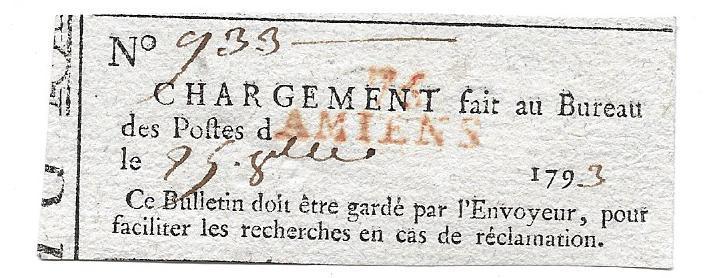 N° 933
76
CHARGEMENT fait au Bureau
des Poſtes d AMIENS
le 25 1793
Ce Bulletin doit être gardé par l'Envoyeur, pour
faciliter les recherches en cas de réclamation.